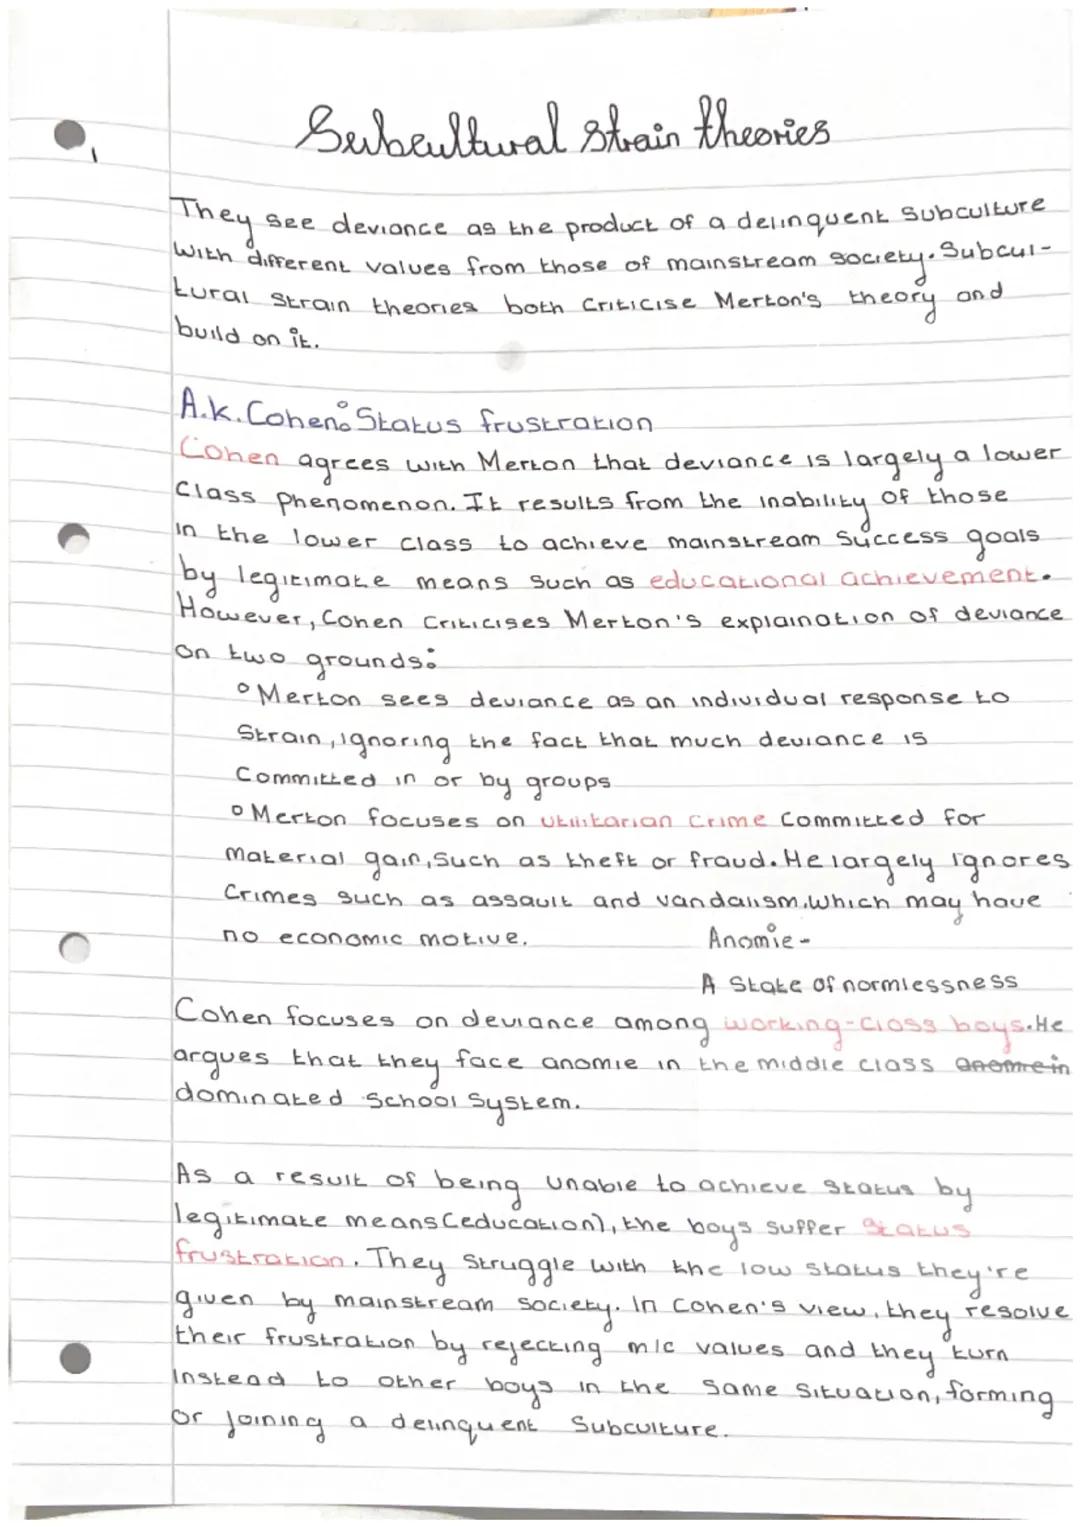 Subcultural strain theories
They see deviance as the product of a delinquent subculture
with different values from those of mainstream society. Subcul-
tural strain theories both criticise Merton's theory and
build on it.
A.K. Cohen: Status frustration
Cohen agrees with Merton that deviance is largely a lower
class phenomenon. It results from the inability of those
in the lower class to achieve mainstream success goals
by legitimate means such as educational achievement.
However, Cohen criticises Merton's explaination of deviance
on two grounds:
° Merton sees deviance as an individual response to
strain, ignoring the fact that much deviance is
committed in or by groups
° Merton focuses on utilitarian crime committed for
material gain, such as theft or fraud. He largely ignores
crimes such as assault and vandalism, which may have
no economic motive.
Anomie -
A state of normlessness
Cohen focuses on deviance among working-class boys. He
argues that they face anomie in the middle class anomie in
dominated school system.
As a result of being unable to achieve status by
legitimate means (education), the boys suffer status
frustration. They struggle with the low status they're
given by mainstream society. In Cohen's view, they resolve
their frustration by rejecting m/c values and they turn
instead to other boys in the same situation, forming
or joining a delinquent subculture.